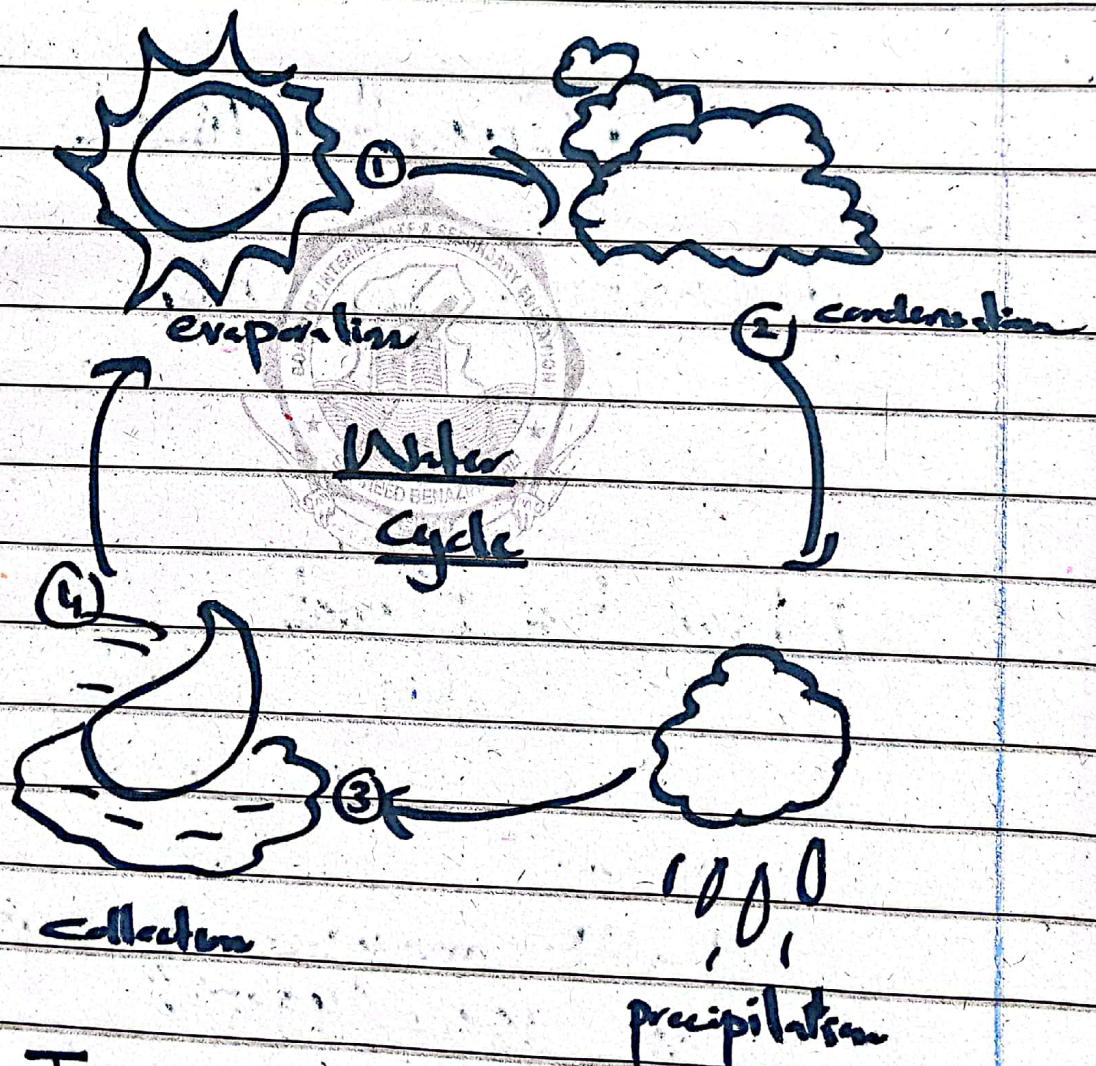 1
evaporation
2 condensation
Water
Cycle
4
3
Collection
precipitation